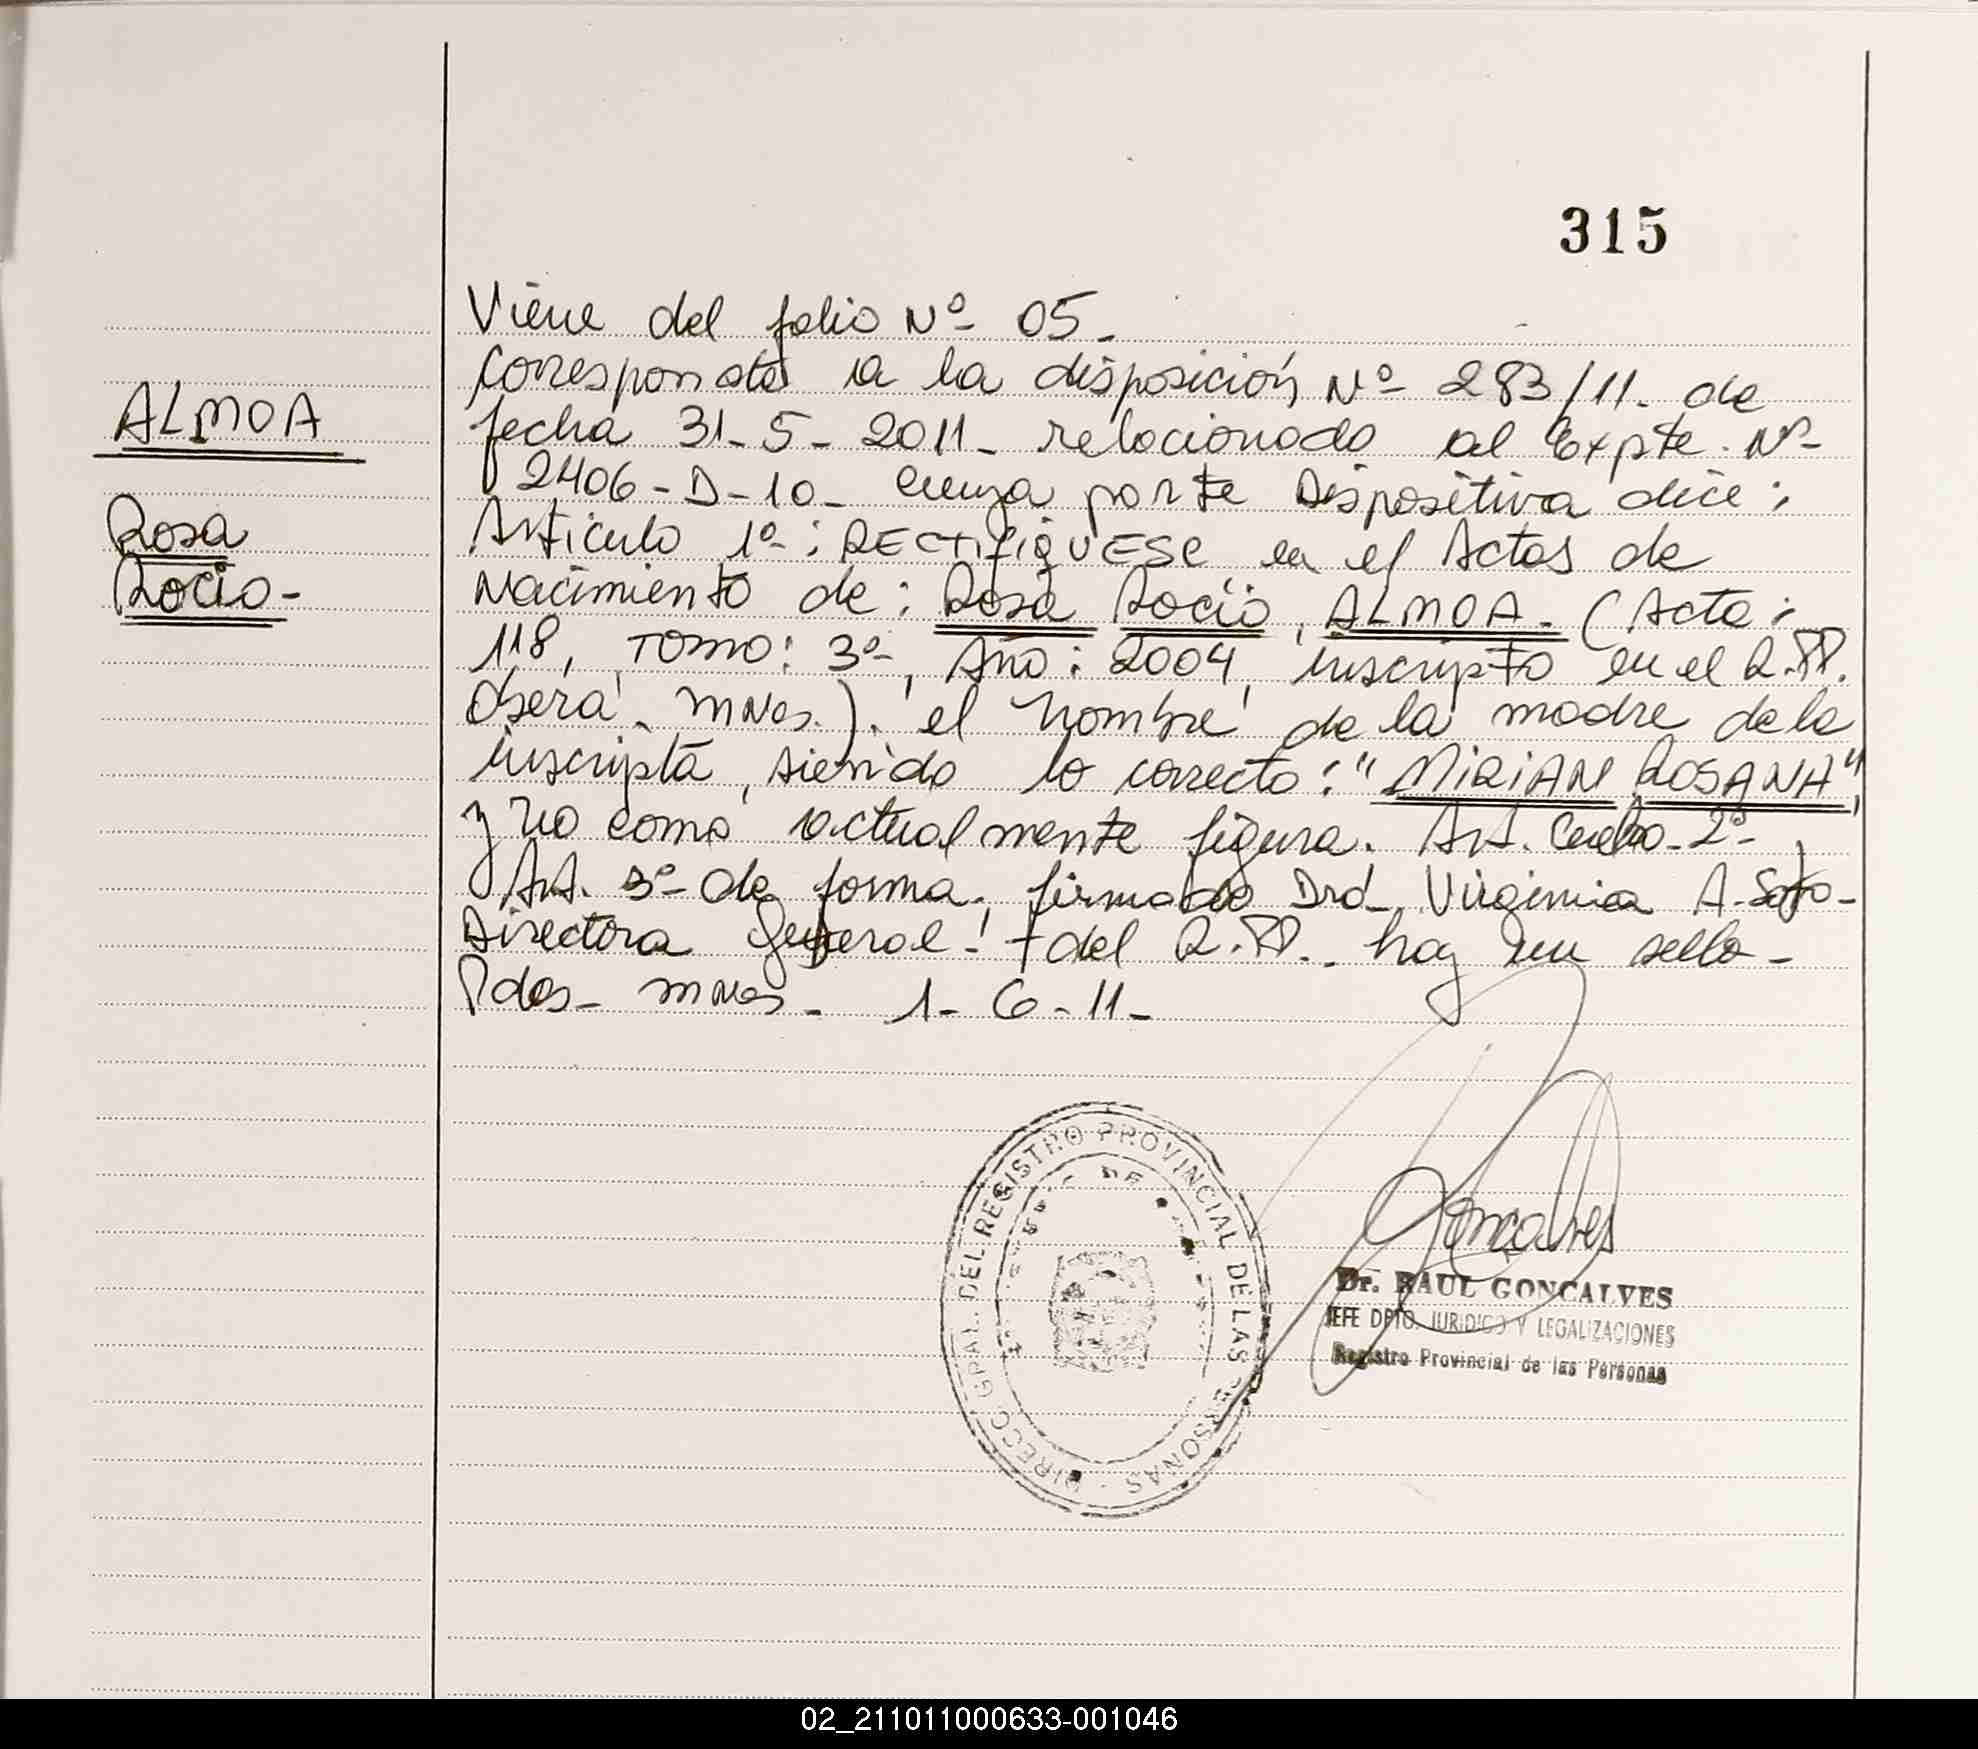 315
Viene del folio Nº 05.
Corresponde a la disposición Nº 283/11. de
ALMOA
fecha 31-5-2011- relacionado al Expte. Nº
2406-D-10- cuya parte Dispositiva dice:
Rosa
Articulo 1º: RECTIFIQUESE en el Actas de
Rocio-
Nacimiento de: Rosa Rocio, ALMOA. (Acta:
118, Tomo: 3º, Año: 2004, inscripto en el R.PP.
Oberá, mnes.). el nombre de la madre de la
inscripta, siendo lo correcto: "MIRIAN ROSANA",
y no como actualmente figura. Art. 2º
Art. 3º de forma, firmado Dra. Virginia A. Soto-
Directora General - del R.PP.. hay un sello-
Pdas- mnes- 1-6-11-
DIRECC. GRAL. DEL REGISTRO PROVINCIAL DE LAS PERSONAS
Goncalves
Dr. RAUL GONCALVES
JEFE DPTO. JURIDICO Y LEGALIZACIONES
Registro Provincial de las Personas
02_211011000633-001046